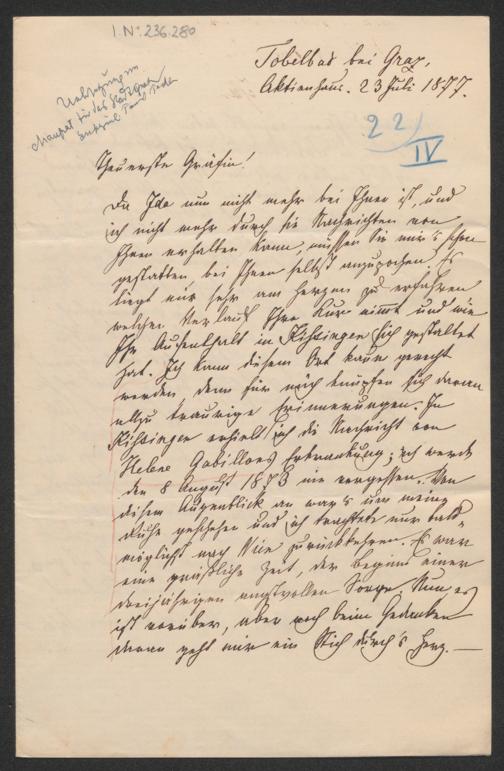 I.N. 236.280
Tobelbad bei Graz,
Aktienhaus. 23 Juli 1877.
22/
IV
Theuerste Gräfin!
Da Ida nun nicht mehr bei Ihnen ist, und
ich nicht mehr durch sie Nachrichten von
Ihnen erhalten kann, müssen Sie mir's schon
gestatten bei Ihnen selbst anzupochen. Es
liegt mir sehr am Herzen zu erfahren
welchen Verlauf Ihre Kur nimmt und wie
Ihr Aufenthalt in Kissingen sich gestaltet
hat. Ich kann diesem Ort kaum gerecht
werden denn für mich knüpfen sich daran
allzu traurige Erinnerungen. In
Kissingen erhielt ich die Nachricht von
Helene Gabillons Erkrankung; ich werde
den 8 August 1873 nie vergessen. Von
diesem Augenblick an war's um meine
Ruhe geschehen und ich trachtete nur bald-
möglichst nach Wien zurückkehren. Es war
eine gräßliche Zeit, der Beginn einer
dreijährigen angstvollen Sorge. Nun es
ist vorüber, aber noch beim Gedanken
daran geht mir ein Stich durch's Herz. —